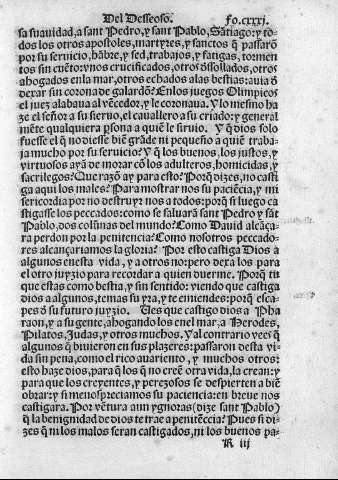 Del Desseoso. fo.cxxxj.
sa suauidad, a sant Pedro, y sant Pablo, Sātiago: y to-
dos los otros apostoles, martyres, y sanctos q̄ passarō
por su seruicio, hābre, y sed, trabajos, y fatigas, tormen
tos sin cuēto: y nos crucificados, otros dessollados, otros
ahogados enla mar, otros echados alas bestias: auia d̄
dexar sin corona de galardō? Enlos juegos Olimpicos
el juez alabaua al vēcedor, y le coronaua. Y lo mesmo ha
ze el señor a su sieruo, el cauallero a su criado: y general
mēte qualquiera p̄sona a quiē le siruio. Y q̄ dios solo
fuesse el q̄ no diesse biē grāde ni pequeño a quiē traba
ja mucho por su seruicio? Y q̄ los buenos, los justos, y
virtuosos ayā de morar cō los adulteros, homicidas, y
sacrilegos? Que razō ay para esto? Porq̄ dizes, no casti
ga aqui los males? Para mostrar nos su paciēcia, y mi
sericordia por no destruyr nos a todos: porq̄ si luego ca
stigasse los peccados: como se saluarā sant Pedro y sāt
Pablo, dos colūnas del mundo? Como Dauid alcāça-
ra perdon por la penitencia? Como nosotros peccado-
res alcançariamos la gloria? Por esto castiga Dios a
algunos enesta vida, y a otros no: pero dexa los para
el otro juyzio para recordar a quien duerme. Porq̄ ti
que estas como bestia, y sin sentido: viendo que castiga
dios a algunos, temas su yra, y te emiendes: porq̄ esca-
pes d̄ su futuro juyzio. Ues que castigo dios a Pha
raon, y a su gente, ahogando los enel mar, a Herodes,
Pilatos, Judas, y otros muchos. Y al contrario vees q̄
algunos q̄ biuieron en sus plazeres: passaron desta vi-
da sin pena, como el rico auariento, y muchos otros:
esto haze dios, para q̄ los q̄ no creē otra vida, la crean: y
para que los creyentes, y perezosos se despierten a biē
obrar: y si menospreciamos su paciencia: en breue nos
castigara. Por vētura aun ygnoras (dize sant Pablo)
q̄ la benignidad de dios te trae a penitēcia? Pues si di-
zes q̄ ni los malos seran castigados, ni los buenos pa-
R iij